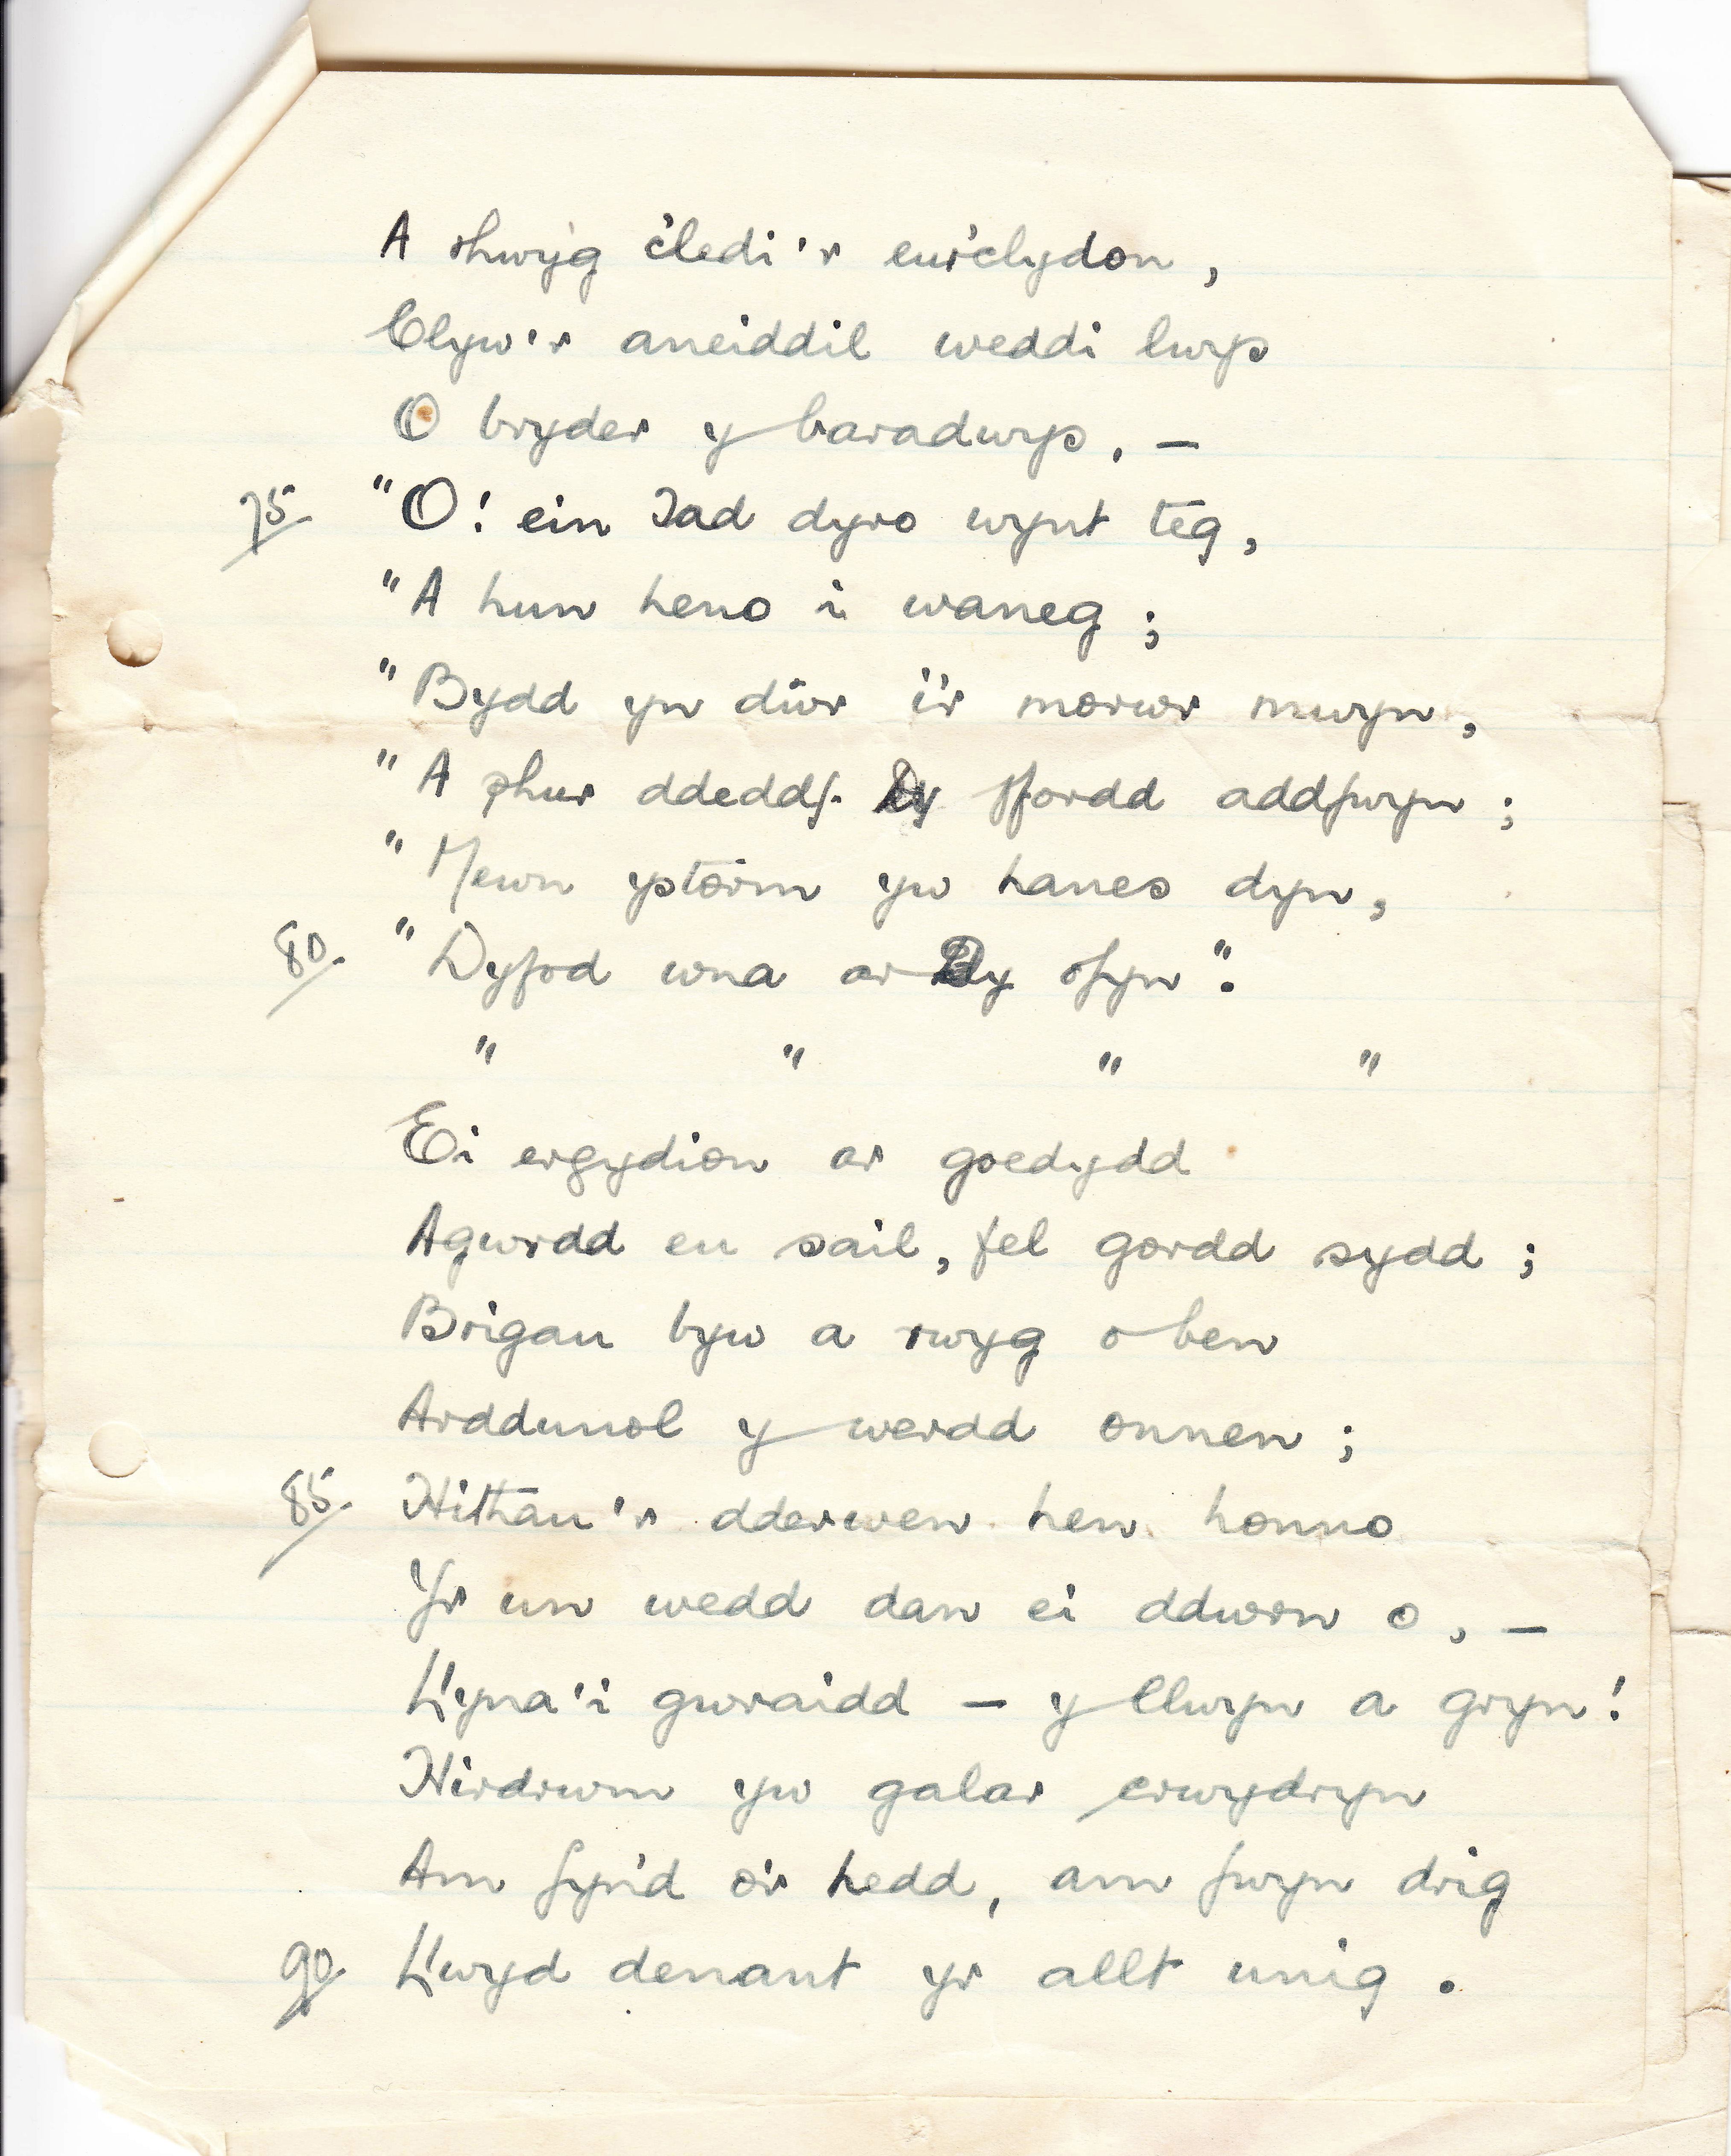 A rhwyg c'ledi'r eur'clydon,
Clyw'r aneiddil weddi lwys
O bryder y baradwys, —
75. "O! ein Iad dyro wynt teg,
"A hun heno i waneg;
"Bydd yn dŵr i'r morwr mwyn,
"A phur ddeddf. Dy ffordd addfwyn;
"Mewn ystorm yw hanes dyn,
80. "Dyfod wna ar Dy ofyn".
" " " "
Ei ergydion ar goedydd
Agwrdd eu sail, fel gordd sydd;
Brigau byw a rwyg o ben
Arddunol y werdd onnen;
85. Hithau'r dderwen hen honno
Yr un wedd dan ei ddwrn o, —
Ll'yna'i gwraidd — y llwyn a gryn!
Hirdrwm yw galar erwydryn
Am fyn'd o'r hedd, am fwyn drig
90. Llwyd denant yr allt unig.